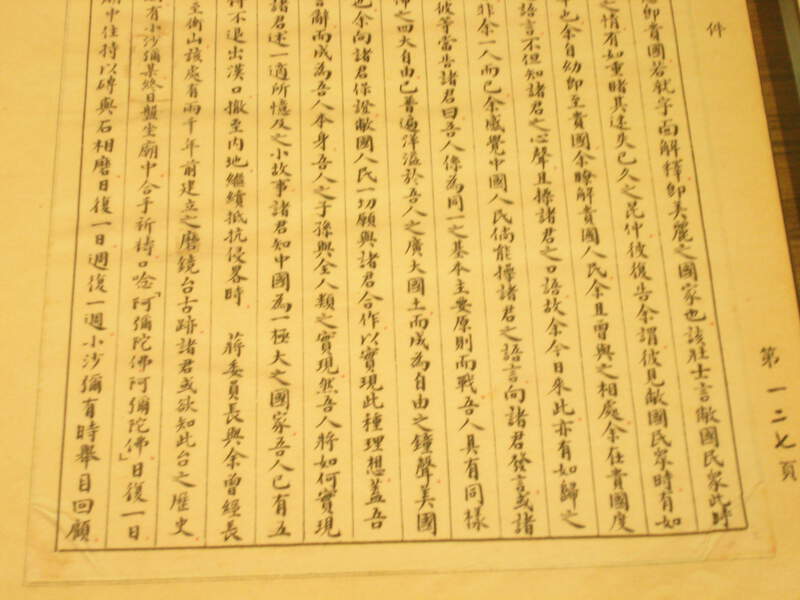 件
第一二七頁
即貴國若就字面解釋即美麗之國家也該壯士言敝國民眾此時
之情有如重睹其迷失已久之昆仲彼復告余謂彼見敝國民眾時有如
也余自幼即至貴國余瞭解貴國人民余且曾與之相處余在貴國度
語言不但知諸君之心聲且操諸君之口語故余今日來此亦有如歸之
非余一人而已余感覺中國人民倘能操諸君之語言向諸君發言或諸
彼等當告諸君曰吾人係為同一之基本主要原則而戰吾人具有同樣
佈之四大自由已普遍洋溢於吾人之廣大國土而成為自由之鐘聲美國
也余向諸君保證敝國人民一切願與諸君合作以實現此種理想蓋吾
言辭而成為吾人本身吾人之子孫與全人類之實現然吾人將如何實現
諸君述一適所憶及之小故事諸君知中國為一極大之國家吾人已有五
得不退出漢口撤至內地繼續抵抗侵畧時　蔣委員長與余曾經長
至衡山該處有兩千年前建立之磨鏡台古跡諸君或欲知此台之歷史
有小沙彌某終日盤坐廟中合手祈禱口唸「阿彌陀佛阿彌陀佛」日復一日
廟中住持以磚與石相磨日復一日週復一週小沙彌有時舉目回顧